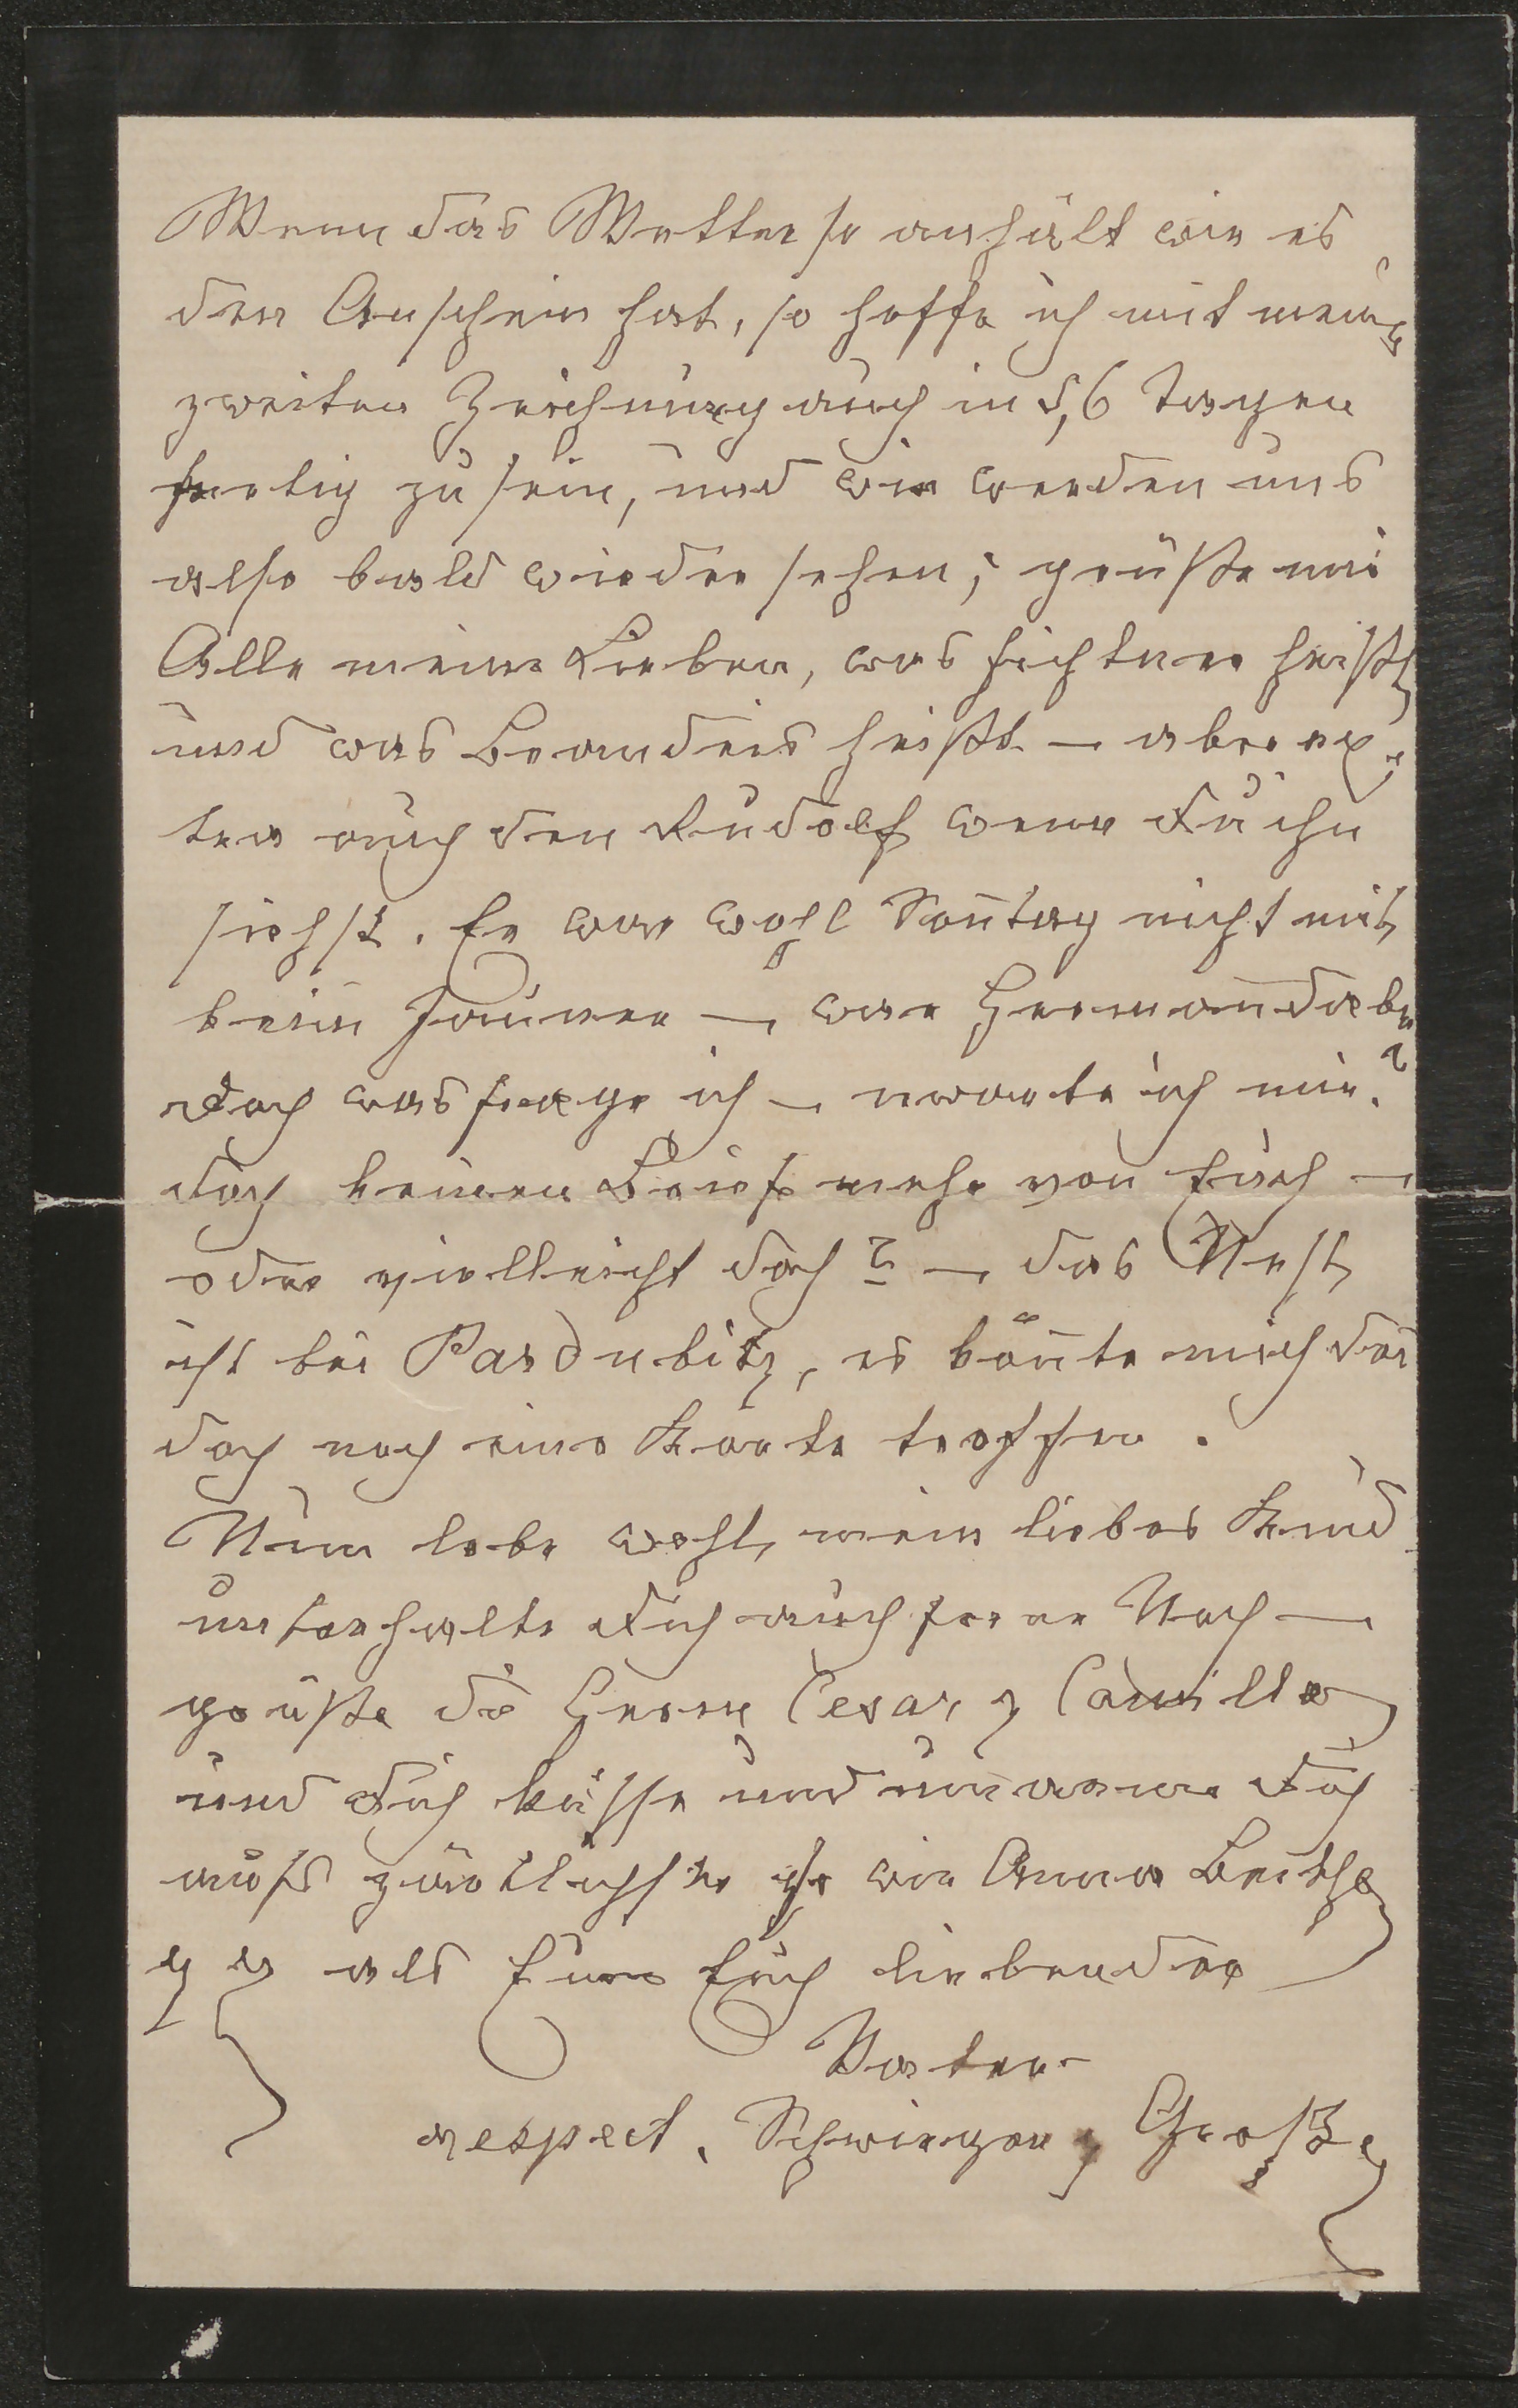 Wenn das Wetter so anhält wie es
den Anschein hat, so hoffe ich mit meiner
zweiten Zeichnung auch in 5, 6 Tagen
fertig zu sein, und wir werden uns
also bald wieder sehen; grüße mir
Alle meine Lieben, was Fichtner heißt,
und was Brandeis heißt — aber ex-
tra auch den Rudolf wenn Du ihn
siehst. Er war wohl Sonntag nicht mit
beim — war Hermann dabei?
doch was frage ich — erwarte ich mir
doch keinen Brief mehr von Euch —
oder vielleicht doch? — das Nest
ist bei Pardubitz, es könnte mich da
doch noch eine Karte treffen.
Nun lebe wohl, mein liebes Kind
unterhalte Dich auch ferner Noch —
grüße die Herrn Cesar, Camillo,
und Dich küsse und umarme Dich
aufs zärtlichste so wie Anna Bertha
als Euer Euch liebender
Vater
respect. Schwieger, Groß,